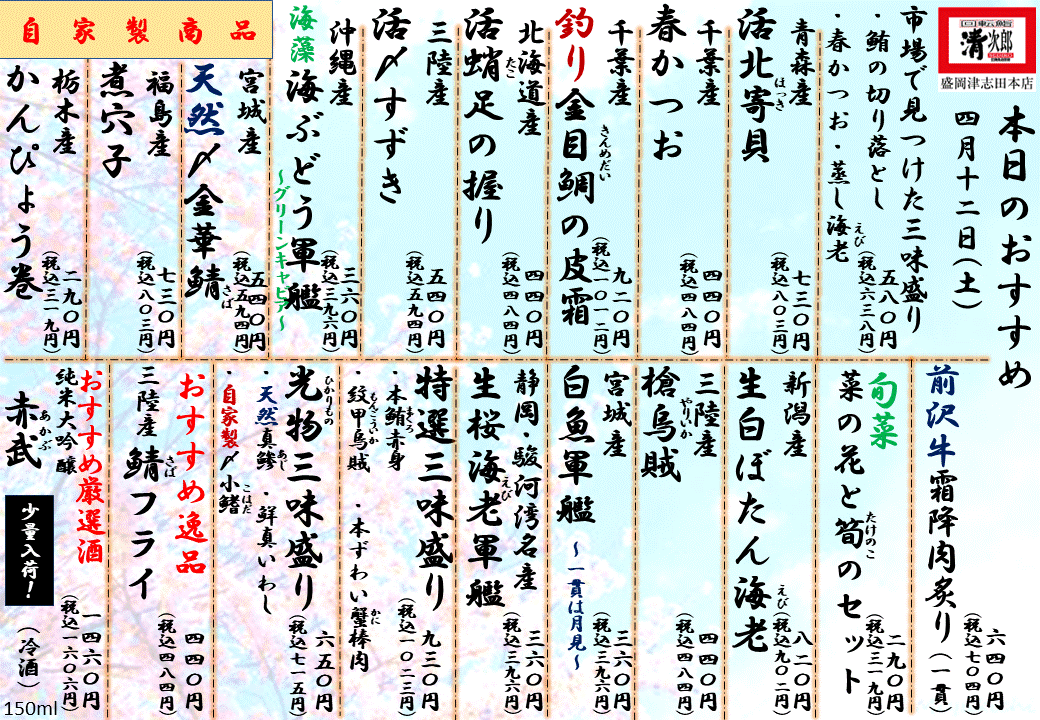 回転鮨
清次郎
盛岡津志田本店
本日のおすすめ
四月十二日(土)
市場で見つけた三味盛り
・鮪の切り落とし
・春かつお・蒸し海老
えび
五八〇円
(税込六三八円)
青森産
活北寄貝
ほっき
七三〇円
(税込八〇三円)
千葉産
春かつお
四四〇円
(税込四八四円)
千葉産
釣り金目鯛の皮霜
きんめだい
九二〇円
(税込一〇一二円)
北海道産
活蛸足の握り
たこ
四四〇円
(税込四八四円)
三陸産
活〆すずき
五四〇円
(税込五九四円)
沖縄産
海藻 海ぶどう軍艦
～グリーンキャビア～
三六〇円
(税込三九六円)
自家製商品
宮城産
天然〆金華鯖
さば
五四〇円
(税込五九四円)
福島産
煮穴子
七三〇円
(税込八〇三円)
栃木産
かんぴょう巻
二九〇円
(税込三一九円)
前沢牛霜降肉炙り(一貫)
六四〇円
(税込七〇四円)
旬菜
菜の花と筍のセット
たけのこ
二九〇円
(税込三一九円)
新潟産
生白ぼたん海老
えび
八二〇円
(税込九〇二円)
三陸産
槍烏賊
やりいか
四四〇円
(税込四八四円)
宮城産
白魚軍艦
～一貫は月見～
三六〇円
(税込三九六円)
静岡・駿河湾名産
生桜海老軍艦
えび
三六〇円
(税込三九六円)
特選三味盛り
・本鮪赤身
まぐろ
・紋甲烏賊
もんごういか
・本ずわい蟹棒肉
かに
九三〇円
(税込一〇二三円)
光物三味盛り
ひかりもの
・天然真鯵
あじ
・鮮真いわし
・自家製〆小鰭
こはだ
六五〇円
(税込七一五円)
おすすめ逸品
三陸産
鯖フライ
さば
四四〇円
(税込四八四円)
おすすめ厳選酒
純米大吟醸
赤武
あかぶ
少量入荷!
一四六〇円
(税込一六〇六円)
(冷酒)
150ml